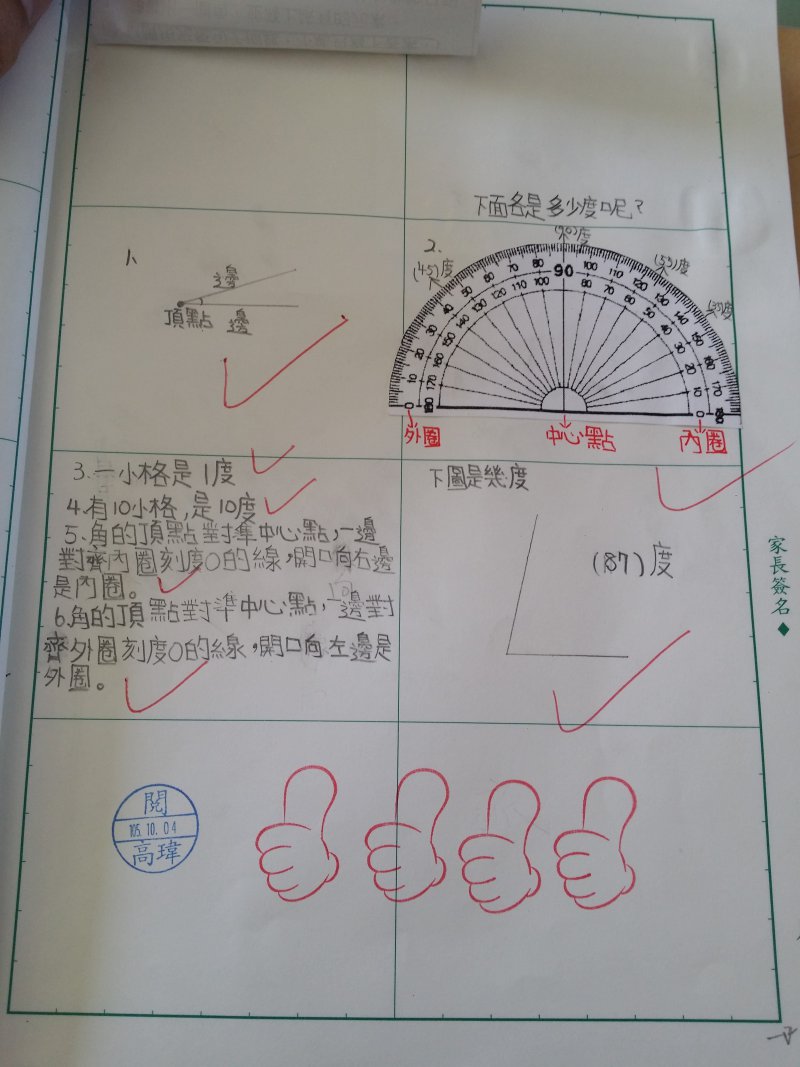 下面各是多少度呢?
1、
邊
頂點 邊
2、
(90)度
(45)度
(53)度
90
外圈 中心點 內圈
3、一小格是1度
4、有10小格,是10度
5、角的頂點對準中心點,一邊
對齊內圈刻度0的線,開口向右邊
是內圈。
6、角的頂點對準中心點,一邊對
齊外圈刻度0的線,開口向左邊是
外圈。
下圖是幾度
(87)度
家長簽名◆
閱
105.10.04
高瑋